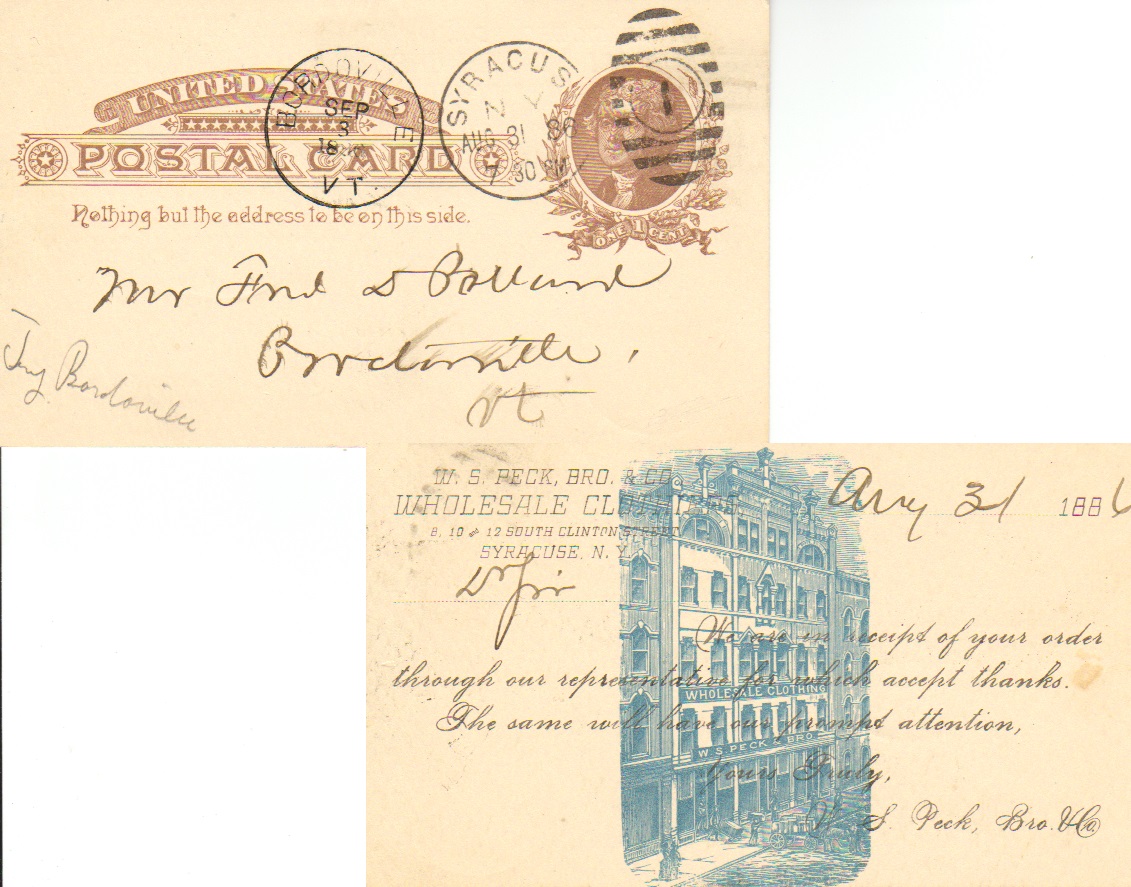 UNITED STATES
POSTAL CARD
Nothing but the address to be on this side.
BORDOVILLE
SEP
3
18
VT
SYRACUSE
N Y
AUG 31 86
7 30 PM
1
ONE 1 CENT
Mr Fred D Pollard
Bordoville,
Vt
Bordoville
W. S. PECK, BRO. & CO.
WHOLESALE CLOTHING,
8, 10 & 12 SOUTH CLINTON STREET
SYRACUSE, N. Y.
Aug 31 1886
Dr Sir
We are in receipt of your order
through our representative for which accept thanks.
The same will have our prompt attention,
Yours Truly,
W. S. Peck, Bro. & Co.
WHOLESALE CLOTHING
W S PECK & BRO